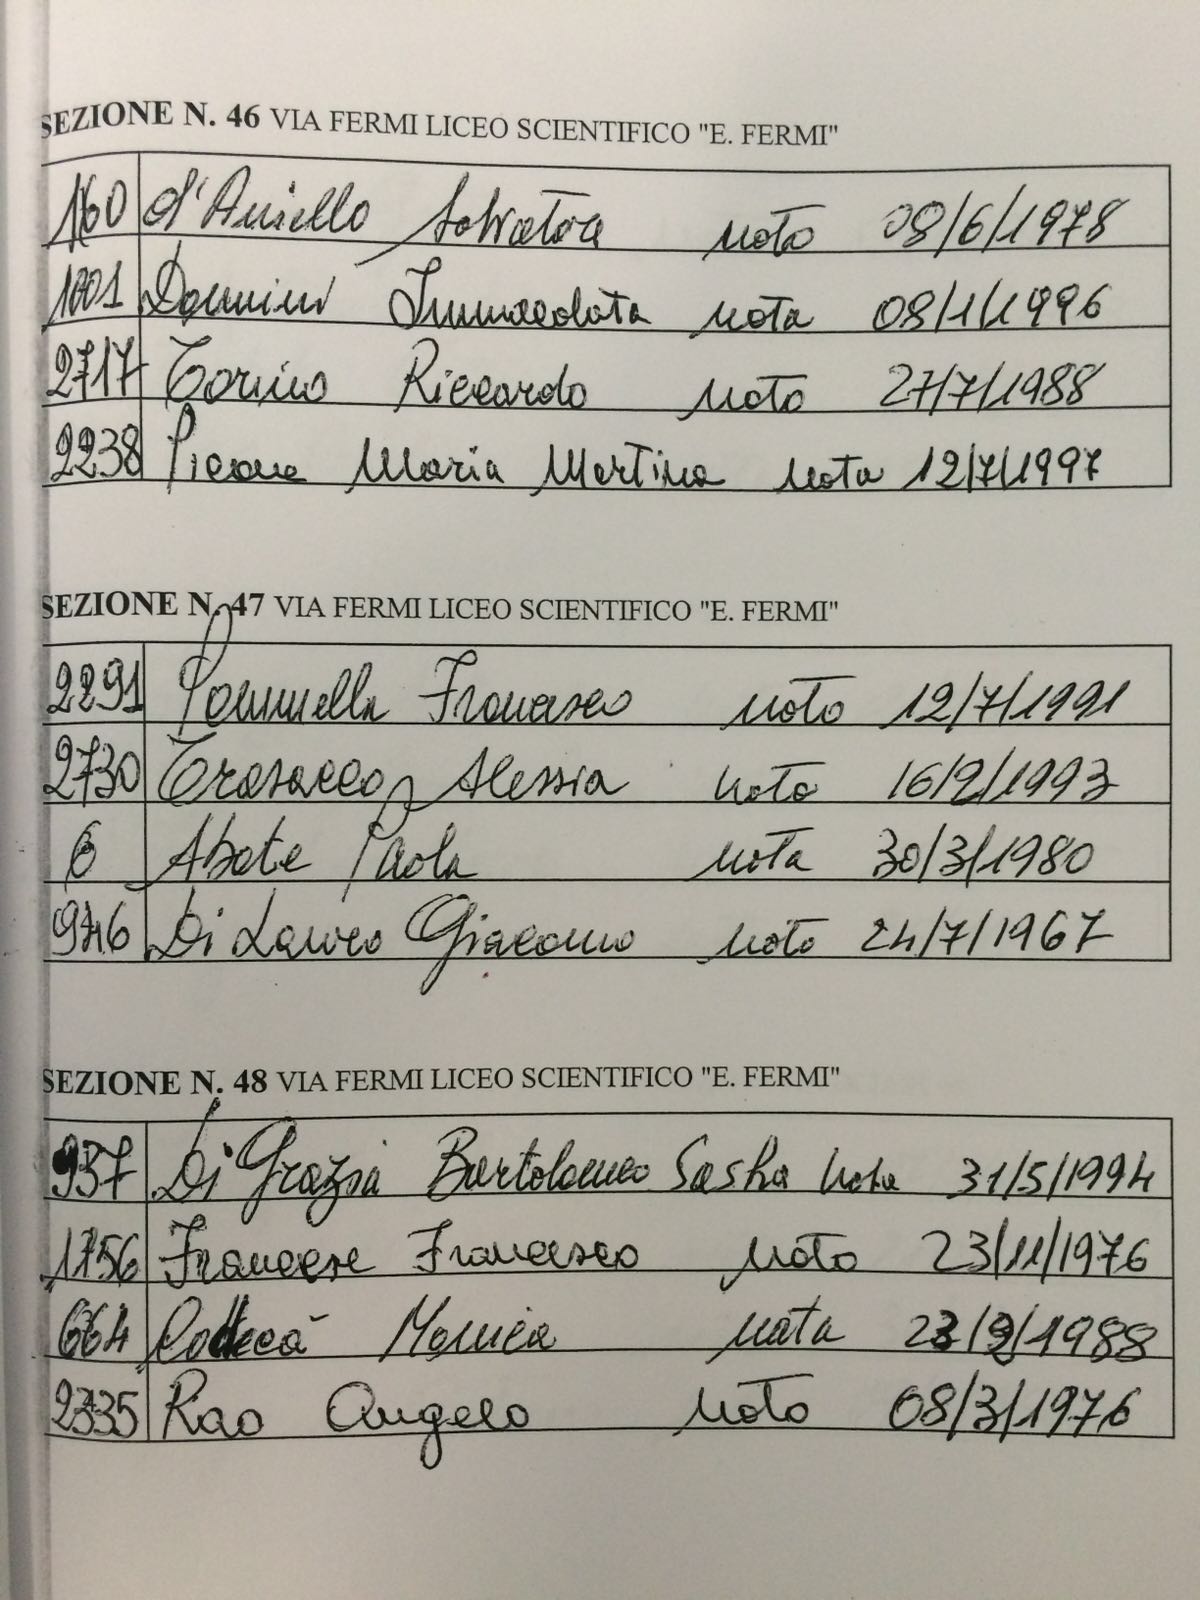 SEZIONE N. 46 VIA FERMI LICEO SCIENTIFICO "E. FERMI"
160 d'Aniello Salvatore nato 08/6/1978
1001 Donnini Immacolata nata 08/1/1996
2717 Torino Riccardo nato 27/7/1988
2238 Picone Maria Martina nata 12/7/1997
SEZIONE N. 47 VIA FERMI LICEO SCIENTIFICO "E. FERMI"
2291 Francesco nato 12/7/1991
2730 Alessia nato 16/2/1993
6 Abate Paola nata 30/3/1980
946 Di Lauro Giacomo nato 24/7/1967
SEZIONE N. 48 VIA FERMI LICEO SCIENTIFICO "E. FERMI"
937 Di Grazia Bartolomeo Sasha nata 31/5/1994
1156 Francese Francesco nato 23/11/1976
664 Monica nata 1988
2335 Rao Angelo nato 08/3/1976